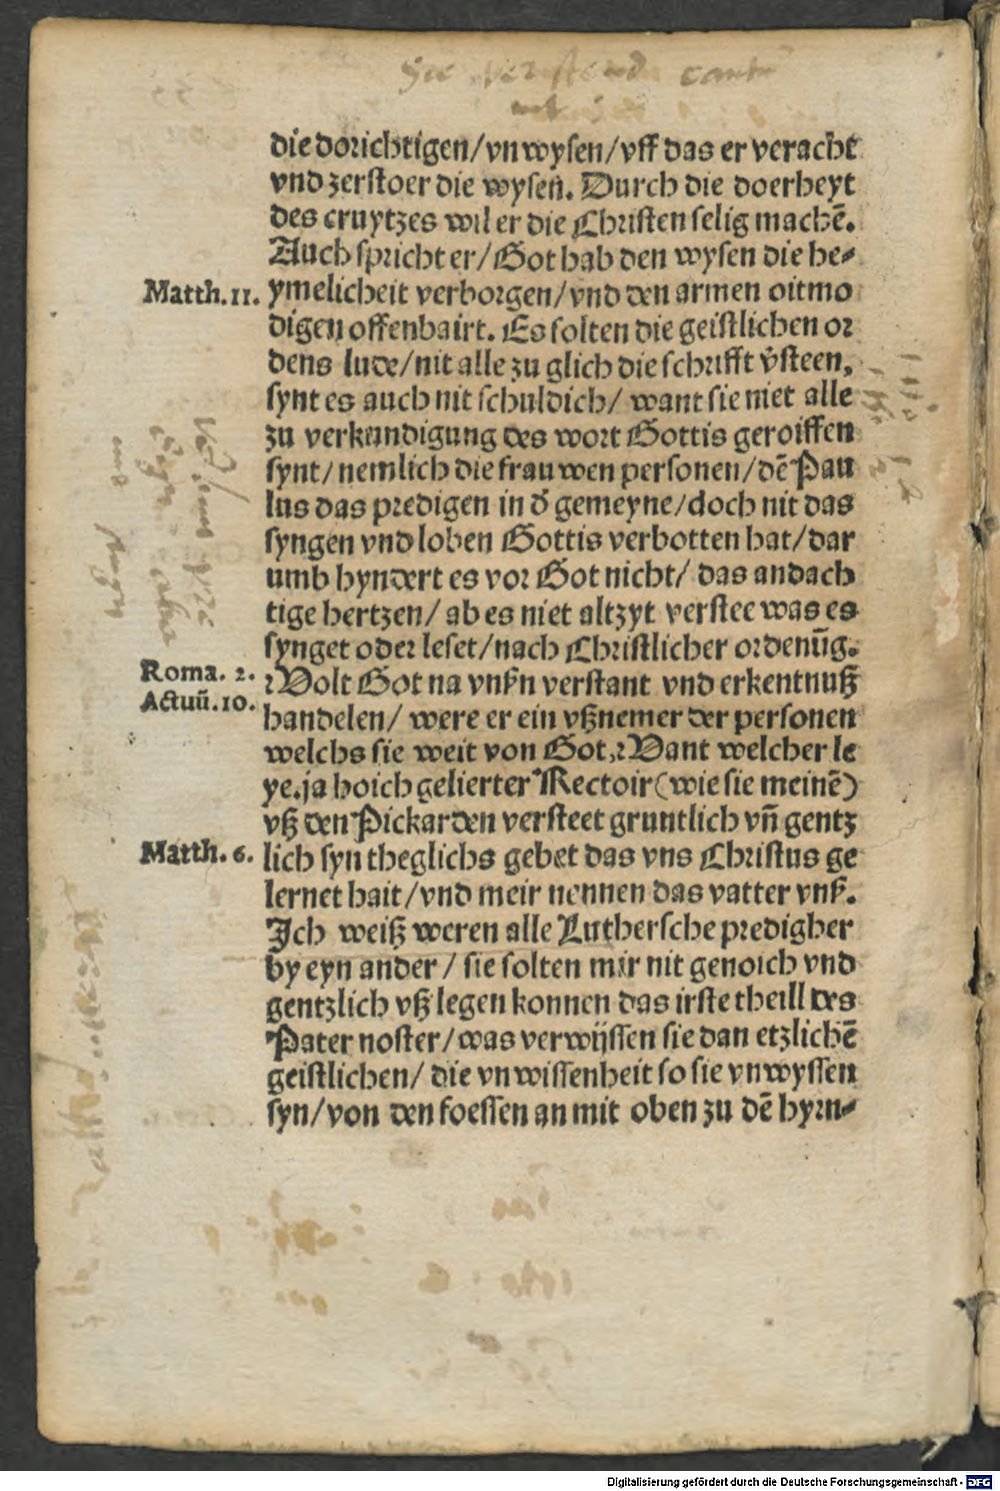 die dorichtigen/vnwysen/vff das er veracht
vnd zerstoer die wysen. Durch die doerheyt
des cruytzes wil er die Christen selig machē.
Auch spricht er/Got hab den wysen die he-
Matth.11. ymelicheit verborgen/vnd den armen oitmo
digen offenbairt. Es solten die geistlichen or
dens lude/nit alle zu glich die schrifft v̄steen,
synt es auch nit schuldich/ want sie niet alle
zu verkundigung des wort Gottis geroiffen
synt/nemlich die frauwen personen/dē Pau
lus das predigen in d̄ gemeyne/doch nit das
syngen vnd loben Gottis verbotten hat/dar
umb hyndert es vor Got nicht/ das andach
tige hertzen/ ab es niet altzyt verstee was es
synget oder leset/nach Christlicher ordenūg.
Roma. 2. Wolt Got na vnẜn verstant vnd erkentnuß
Actuū.10. handelen/ were er ein vßnemer der personen
welchs sie weit von Got, Want welcher le
ye.ja hoich gelierter Rectoir(wie sie meinē)
vß den Pickarden versteet gruntlich vn̄ gentz
Matth. 6. lich syn theglichs gebet das vns Christus ge
lernet hait/vnd meir nennen das vatter vnẜ.
Ich weiß weren alle Luthersche predigher
by eyn ander / sie solten mir nit genoich vnd
gentzlich vß legen konnen das irste theill des
Pater noster/was verwijssen sie dan etzlichē
geistlichen/ die vnwissenheit so sie vnwyssen
syn/von den foessen an mit oben zu dē hyrn-
Digitalisierung gefördert durch die Deutsche Forschungsgemeinschaft - DFG